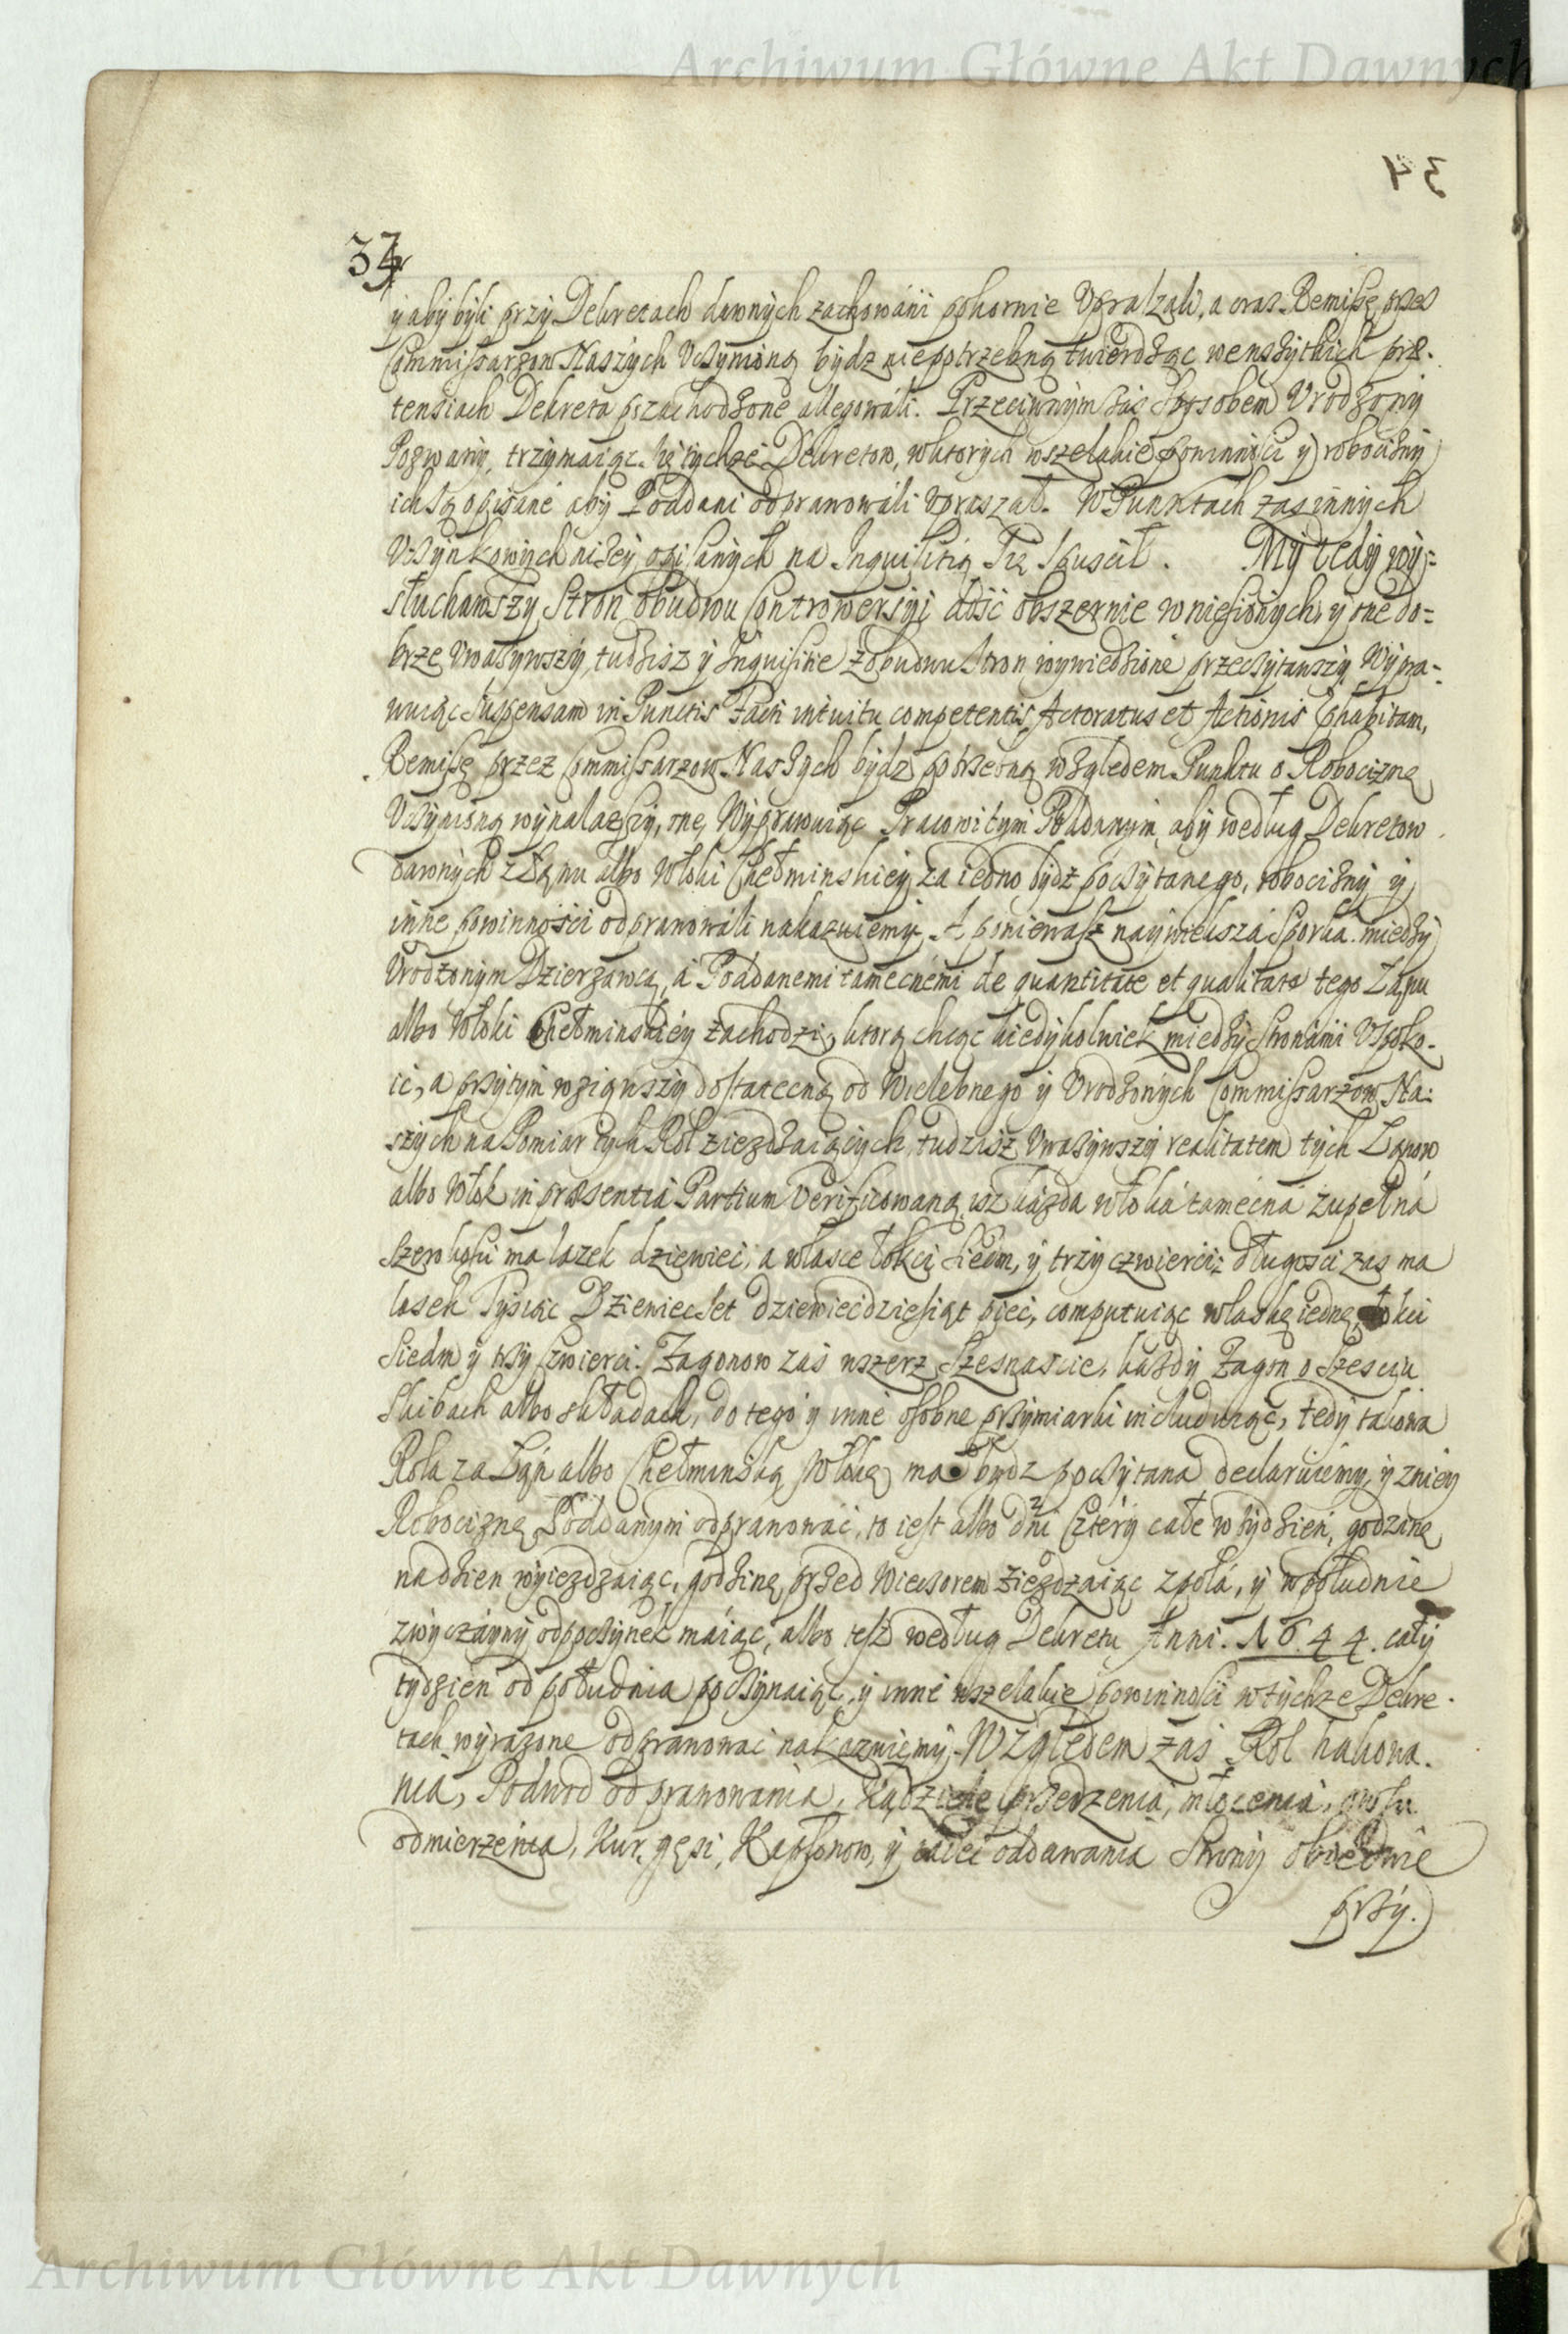 Archiwum Główne Akt Dawnych
34
y aby byli przy Dekretach dawnych zachowáni pokornie Upraszali, a oraz Remissę przez
Commissarzow Naszych Uczynioną bydz niepotrzebną twierdząc we wszytkich præ-
tensiach Dekreta przachodzone allegowáli. Przeciwnym zas sposobem Urodzony
Pozwany, trzymaiąc się tychże Dekretow, wktorych wszelakie powinności y robocizny
ich są opisane aby Poddani odprawowáli Upraszał. W Punktach zas innych
Uczynkowych niżey opisanych na Inquisitią Się Spuscił. My tedy wy-
słuchawszy Stron obudwu Controwersyi dość obszernie wniesionych, y one do-
brze Uważywszy, tudzisz y Inquisitie Zobudwu Stron wywiedzione przeczytawszy Wypra-
wuiąc Suspensam in Punctis Facti intuitu competentis Actoratus et Actionis Ehabitam,
Remissę przez Commissarzow Naszych bydz potrzebną względem Punktu o Robociznę
Uczynioną wynalazszy, onę Wyprawuiąc Pracowitym Poddanym aby według Dekretow
dawnych z Łąnu albo Włoki Chełminskiey za iedno bydz poczytanego, robocizny y
inne powinności odprawowáli nakazuiemy. A ponieważ naywieksza Sporka miedzy
Urodzonym Dzierzawcą, á Poddanemi tamecznemi de quantitate et qualitate tego Łąnu
albo Włoki Chełminskiey zachodzi, ktorą chcąc kiedykolwiek miedzy Stronámi Uspoko-
ic, a przytym wziąwszy dostateczną od Wielebnego y Urodzonych Commissarzow Na-
szych na Pomiar tych Rol ziezdzaiących, tudzisz Uważywszy realitatem tych Łąnow
albo Włok in præsentia Partium Verificowaną, isz káżda włoká tameczna zupełná
Szerokosci ma lazek dziewieć, a wlasce łokci siedm, y trzy czwierci: długości zas ma
lasek Tysiąc Dziewiecset dziewiecdziesiąt pięć, computuiąc wlaskę iednę łokci
Siedm y trzy czwierci. Zagonow zas wszerz Szesnascie, każdy Zagon o Szesciu
Skibach albo składach, do tego y inne osobne przymiarki includuiąc, tedy takowa
Rola za Łąn albo Chełminską Włokę ma bydz poczytana declaruiemy, y zniey
Robociznę Poddanym odprawowác, to iest albo dni Cztery całe w tydzień, godzinę
nadzien wyiezdzaiąc, godzinę przed Wieczorem ziezdzaiąc z pola, y wpołudnie
zwyczáyny odpoczynek máiąc, albo też według Dekretu Anni. 1644. cały
tydzien od południa poczynaiąc, y inne wszelakie powinności w tychze Dekre-
tach wyrázone odprawowac nakazuiemy. Względem zas Rol hakowa-
nia, Podwod odprawowania, Kądziele przędzenia, młocenia,
odmierzenia, Kur, gęsi, Kapłonow, y iaiec oddawania Strony obiedwie
przy.
Archiwum Główne Akt Dawnych